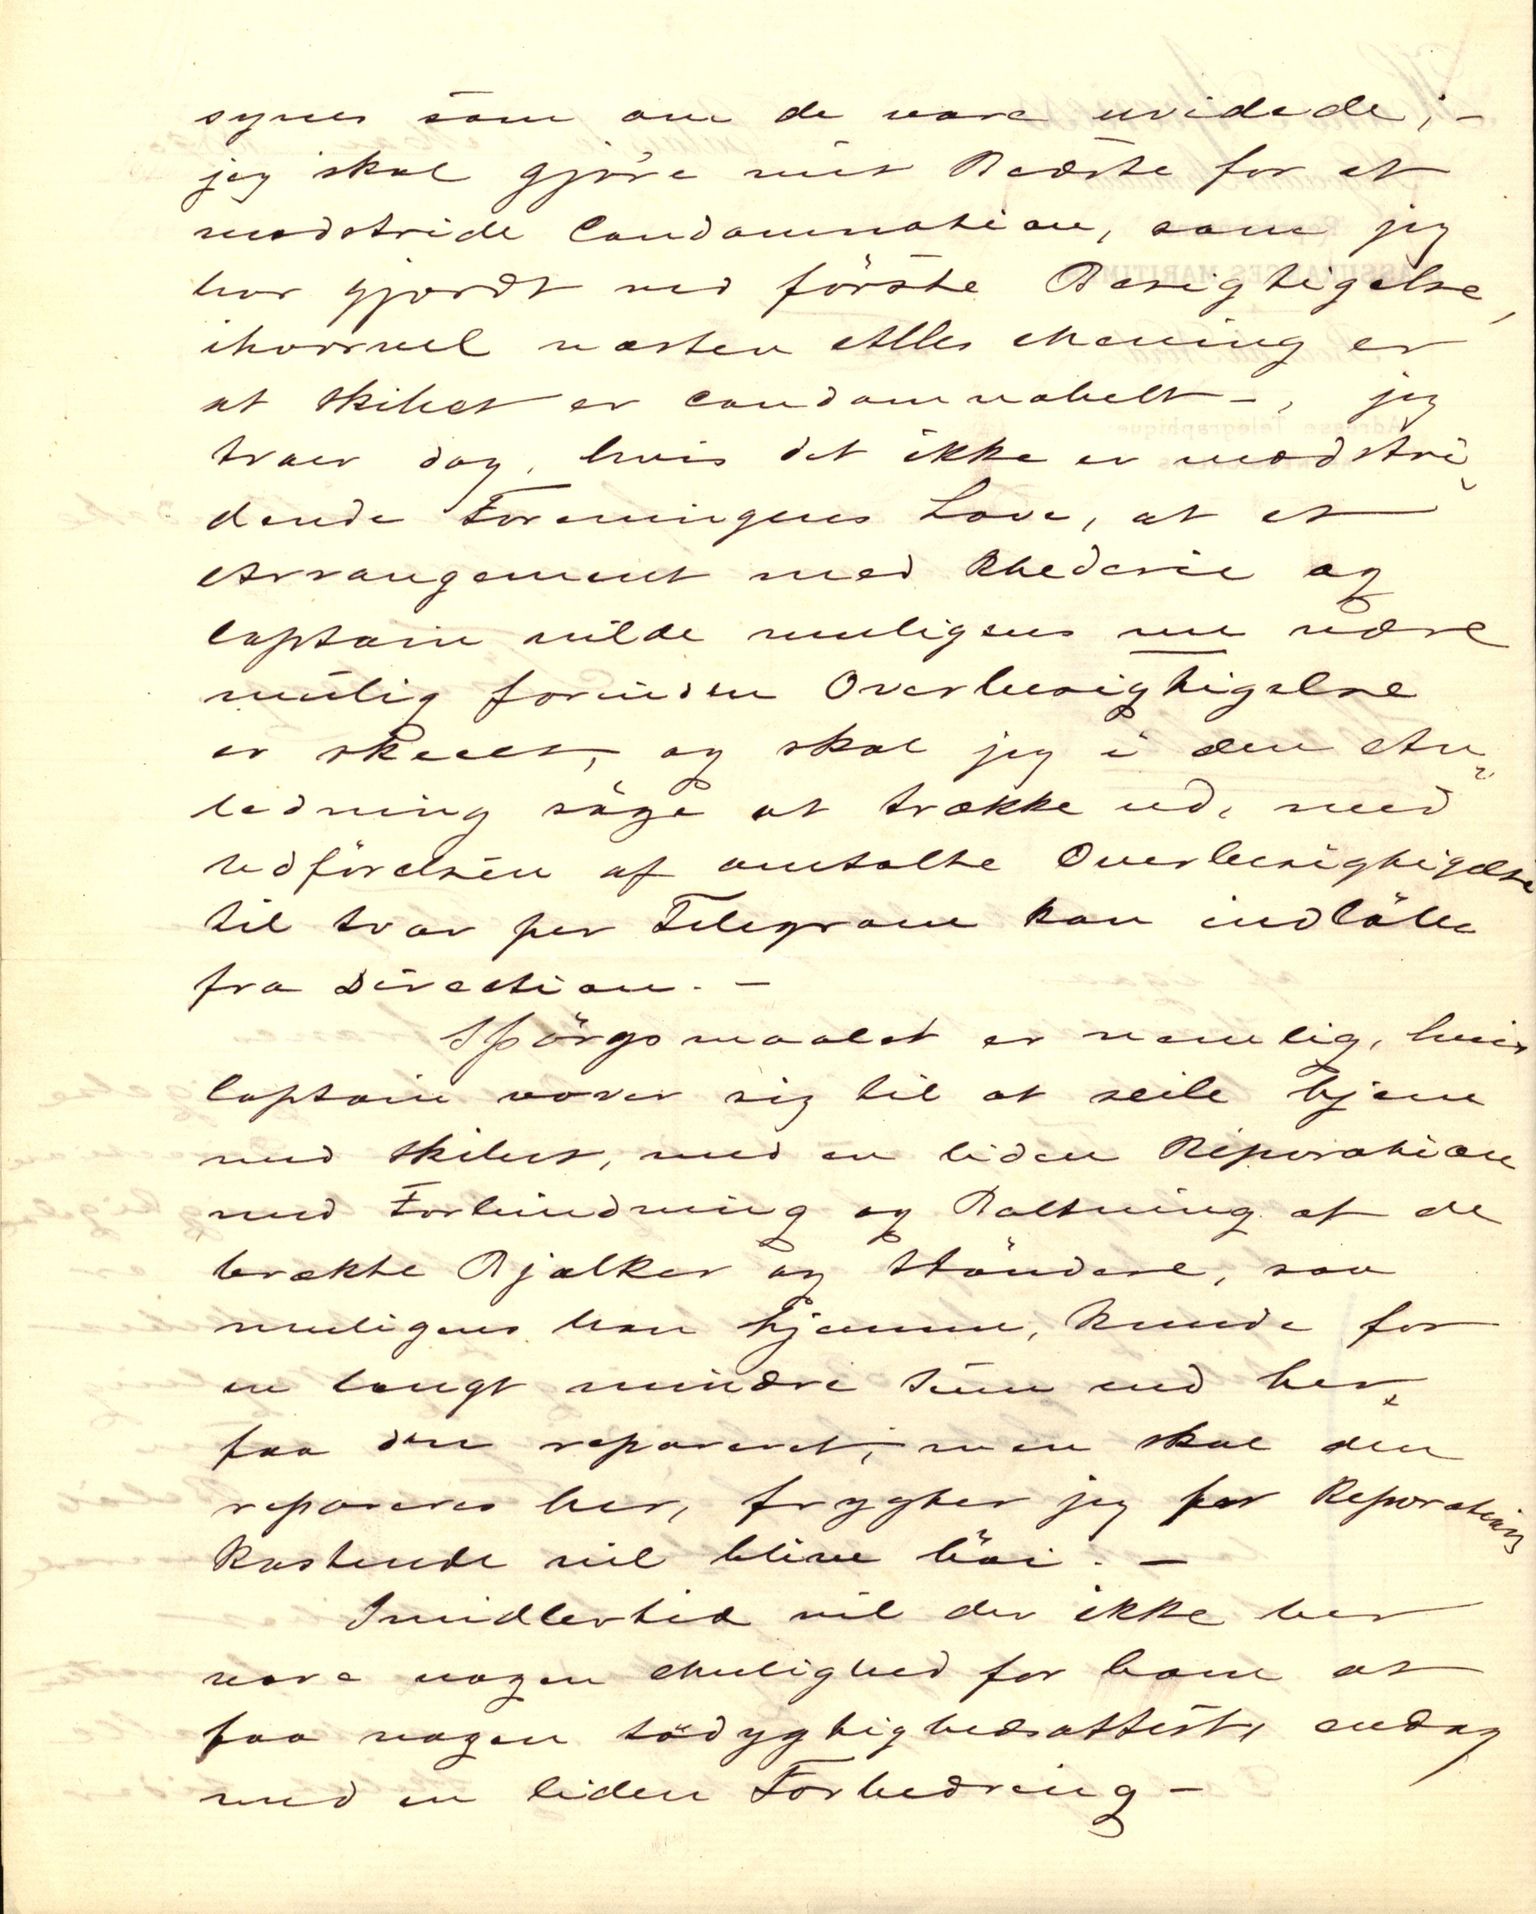 synes som om de vare uvidede; -
jeg skal gjøre mit Bedste for at
modstride Condamnation, som jeg
har gjordt ved første Besigtigelse,
ihvorvel næsten Alles Mening er
at Skibet er Condamnabelt -, jeg
troer dog, hvis det ikke er modstri-
dende Foreningens Love, at et
Arrangement med Rhederie og
Captain vilde muligens nu være
mulig forinden Overbesigtigelse
er skeet, og skal jeg i den An-
ledning søge at trække ud, med
Udførelsen af omtalte Overbesigtigelse
til svar per Telegram kan indløbe
fra Direction. -
Spørgsmaalet er nemlig, hvis
Captain vover sig til at seile hjem
med Skibet, med en liden Reparation
med Forbindning og Boltning af de
brækte Bjelker og Støndere, saa
muligens han hjemme, kunde for
en langt mindre Sum end her
faa den repareret; men skal den
repareres her, frygter jeg for Reparations
Kostende vil blive høi. -
Imidlertid vil der ikke her
være nogen Mulighed for ham at
faa nogen Sødygtighedsattest, endog
med en liden Forbedring -